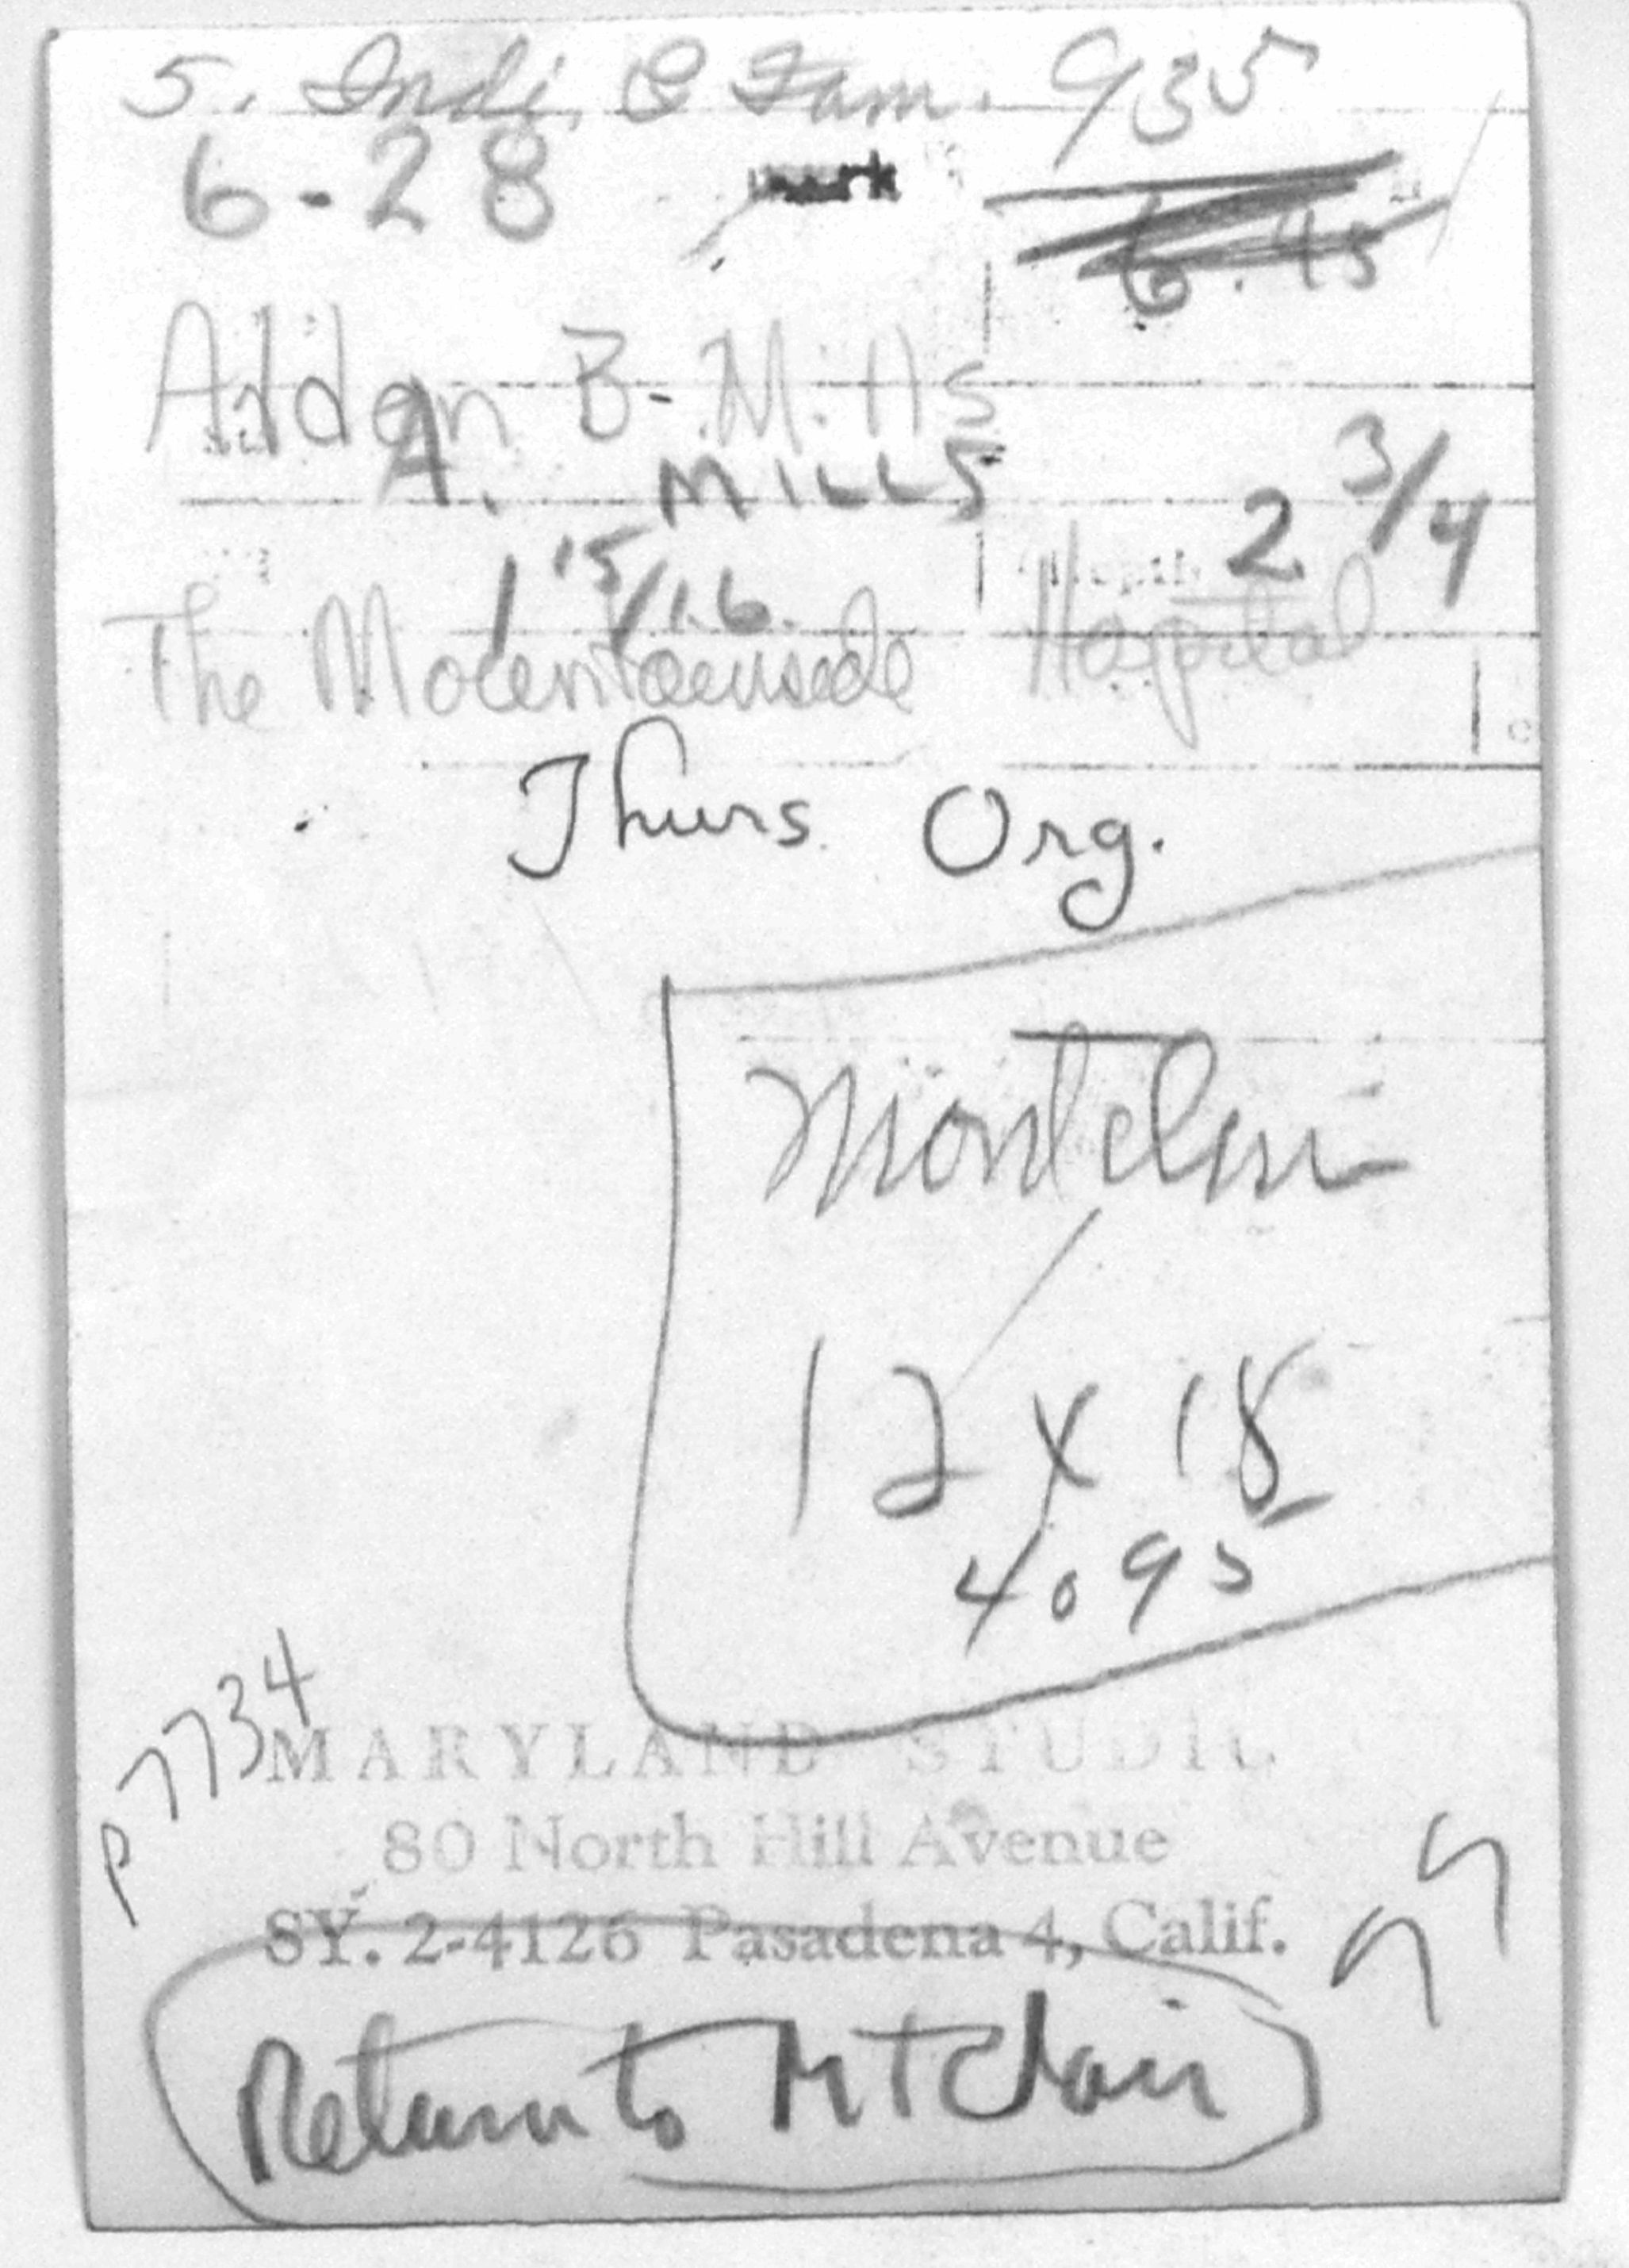 5. Indi. & Fam. 935
6-28
6.45
Alden B. Mills
A. MILLS
2 3/4
1 15/16
The Mountainside Hospital
Thurs. Org.
Montclair
12 x 18
4.95
P7734
MARYLAND STUDIO
80 North Hill Avenue
SY. 2-4126 Pasadena 4, Calif.
Return to Mtclair